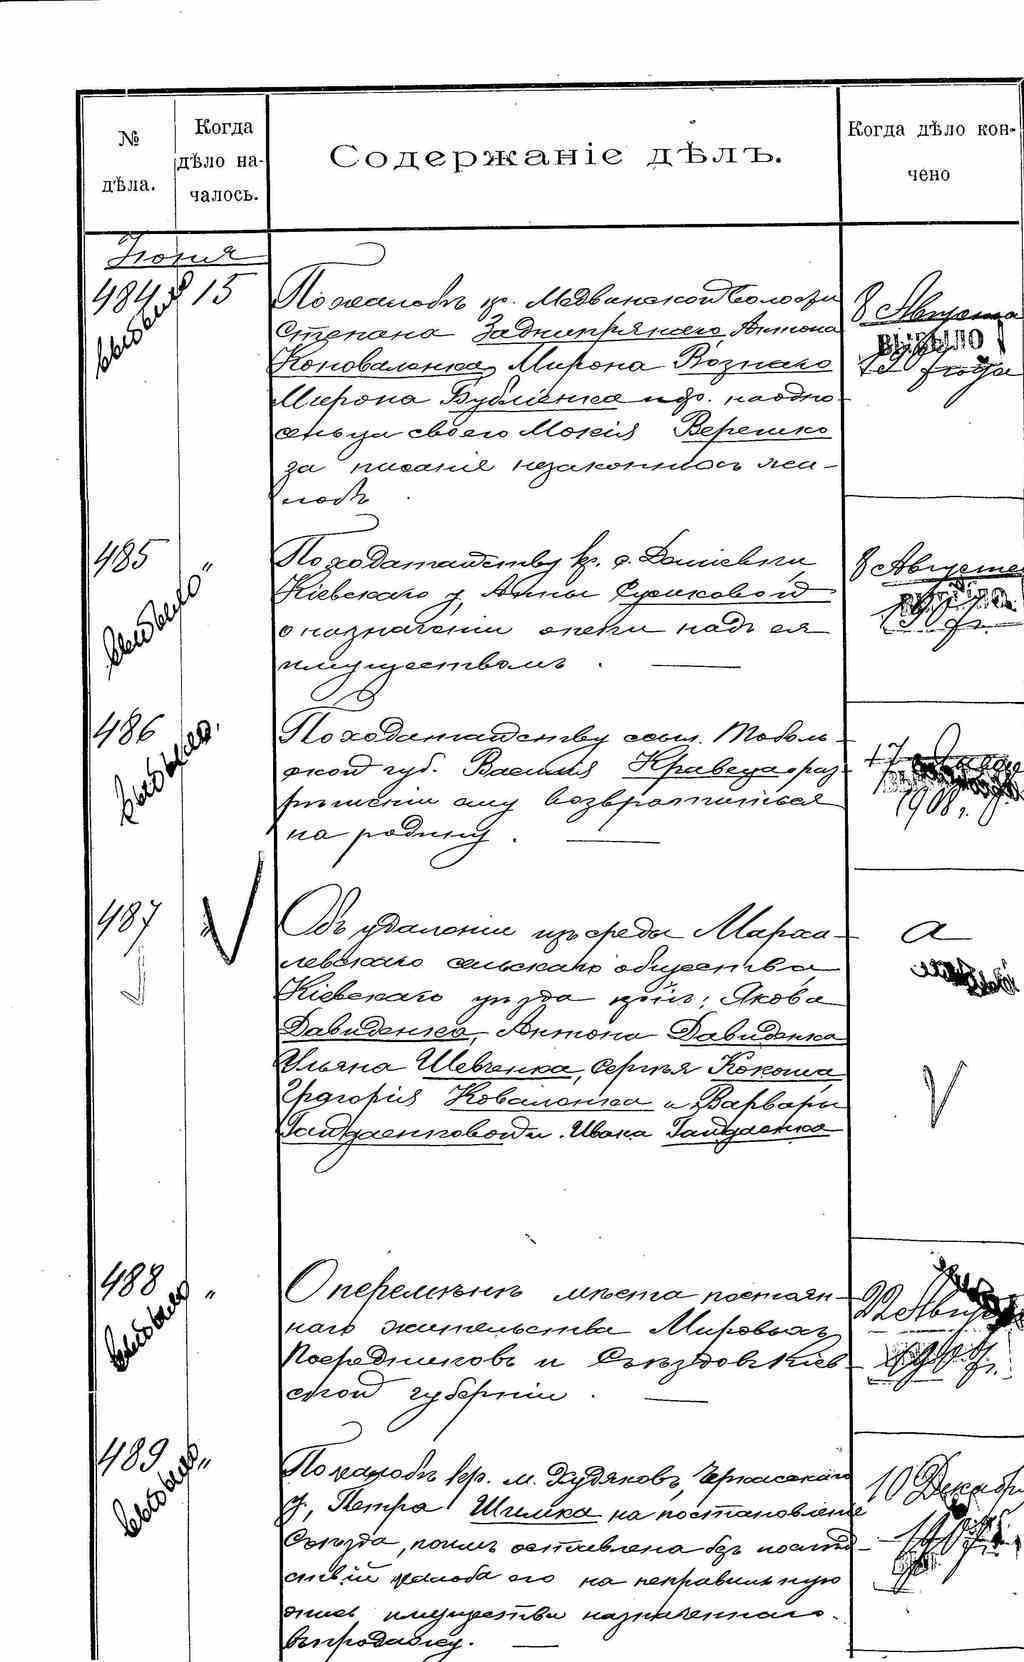 № дѣла.
Когда дѣло на-
чалось.
Содержаніе дѣлъ.
Когда дѣло кон-
чено
Іюня
484 15
выбыло
По жалобѣ кр. Медвинской волости
Степана Заднипрянаго, Антона
Коноваленка, Мирона Вознаго
Мирона Бубліенка и др. на одно-
сельца своего Мокія Верешко
за писаніе незаконныхъ жа-
лобъ.
8 Августа
ВЫБЫЛО
1907 года
485 "
выбыло
По ходатайству кр. с. Даніевки,
Кіевскаго у, Анны Сушковой
о назначеніи опеки надъ ея
имуществомъ.
8 Августа
ВЫБЫЛО
1907 г.
486
выбыло
По ходатайству ссыл. Тоболь-
ской губ. Василія Кравеца о раз-
рѣшеніи ему возвратиться
на родину.
17 Января
1908 г.
487 "
Объ удаленіи изъ среды Марха-
левскаго сельскаго общества,
Кіевскаго уѣзда крест: Якова
Давиденка, Антона Давиденка
Ульяна Шевченка, Сергѣя Кокоша,
Григорія Коваленка и Варвары
Гайдаенковой и Ивана Гайдаенка
а
488 "
выбыло
О перемѣнѣ мѣста постоян-
наго жительства Мировыхъ
Посредниковъ и Съѣздовъ Кіев-
ской губерніи.
22 Августа
1907 г.
489 "
выбыло
По жалобѣ кр. м. Худяковъ, Черкасскаго
у, Петра Шимка на постановленіе
Съѣзда, коимъ оставлена безъ послѣд-
ствій жалоба его на неправильную
опись имущества назначеннаго
въ продажу.
10 Декабр
1907 г.